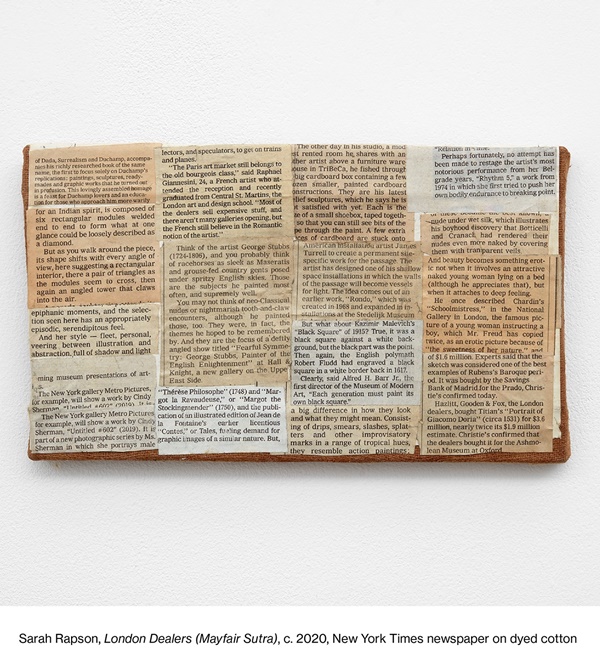 of Dada, Surrealism and Duchamp, accompa-
nies his richly researched book of the same
name, the first to focus solely on Duchamp's
replications: paintings, sculptures, ready-
mades and graphic works that he turned out
in profusion. This lovingly assembled
for an Indian spirit, is composed of
six rectangular modules welded
end to end to form what at one
glance could be loosely described as
a diamond.
But as you walk around the piece,
its shape shifts with every angle of
view, here suggesting a rectangular
interior, there a pair of triangles as
the modules seem to cross, then
again an angled tower that claws
into the air.
epiphanic moments, and the selec-
tion seen here has an appropriately
episodic, serendipitous feel.
And her style — fleet, personal,
veering between illustration and
abstraction, full of shadow and light
ming museum presentations of art-
s.
The New York gallery Metro Pictures,
for example, will show a work by Cindy
Sherman, "Untitled #602" (2019). It is
The New York gallery Metro Pictures,
for example, will show a work by Cindy
Sherman, "Untitled #602" (2019). It is
part of a new photographic series by Ms.
Sherman in which she portrays male
lectors, and speculators, to get on trains
and planes.
"The Paris art market still belongs to
the old bourgeois class," said Raphael
Giannesini, 24, a French artist who at-
tended the reception and recently
graduated from Central St. Martins, the
London art and design school. "Most of
the dealers sell expensive stuff, and
there aren't many galleries opening, but
the French still believe in the Romantic
notion of the artist."
Think of the artist George Stubbs
(1724-1806), and you probably think
of racehorses as sleek as Maseratis
and grouse-fed country gents posed
under spreading English skies. Those
are the subjects he painted most
often, and supremely well.
You may not think of neo-Classical
nudes or nightmarish tooth-and-claw
encounters, although he painted
those, too. They were, in fact, the
themes he hoped to be remembered
by. And they are the focus of a deftly
angled show titled "Fearful Symme-
try: George Stubbs, Painter of the
English Enlightenment" at Hall &
Knight, a new gallery on the Upper
East Side.
"Thérèse Philosophe" (1748) and "Mar-
got la Ravaudeuse," or "Margot the
Stockingmender" (1750), and the publi-
cation of an illustrated edition of Jean de
la Fontaine's earlier licentious
"Contes," or Tales, fueling demand for
graphic images of a similar nature. But,
The other day in his studio, a mod
st rented room he shares with an
other artist above a furniture ware
ouse in TriBeCa, he fished through
big cardboard box containing a few
ozen smaller, painted cardboard
instructions. They are his latest
lief sculptures, which he says he is
t satisfied with yet. Each is the
e of a small shoebox, taped togeth-
so that you can still see bits of the
pe through the paint. A few extra
ces of cardboard are stuck onto
American installation artist James
Turrell to create a permanent site-
specific work for the passage. The
artist has designed one of his shallow
space installations in which the walls
of the passage will become vessels
for light. The idea comes out of an
earlier work, "Rondo," which was
created in 1968 and expanded in in-
stallations at the Stedelijk Museum
But what about Kazimir Malevich's
"Black Square" of 1915? True, it was a
black square against a white back-
ground, but the black part was the point.
Then again, the English polymath
Robert Fludd had engraved a black
square in a white border back in 1617.
Clearly, said Alfred H. Barr Jr., the
first director of the Museum of Modern
Art, "Each generation must paint its
own black square."
a big difference in how they look
and what they might mean. Consist-
ing of drips, smears, slashes, splat-
ters and other improvisatory
marks in a range of tropical hues,
they resemble action paintings,
Perhaps fortunately, no attempt has
been made to restage the artist's most
notorious performance from her Bel-
grade years, "Rhythm 5," a work from
1974 in which she first tried to push her
own bodily endurance to breaking point.
nude under wet silk, which illustrates
his boyhood discovery that Botticelli
and Cranach, had rendered their
nudes even more naked by covering
them with transparent veils.
and beauty becomes something erot-
ic not when it involves an attractive
naked young woman lying on a bed
(although he appreciates that), but
when it attaches to deep feeling.
He once described Chardin's
"Schoolmistress," in the National
Gallery in London, the famous pic-
ture of a young woman instructing a
boy, which Mr. Freud has copied
twice, as an erotic picture because of
"the sweetness of her nature," and
of $1.6 million. Experts said that the
sketch was considered one of the best
examples of Rubens's Baroque peri-
od. It was bought by the Savings
Bank of Madrid for the Prado, Chris-
tie's confirmed today.
Hazlitt, Gooden & Fox, the London
dealers, bought Titian's "Portrait of
Giacomo Doria" (circa 1531) for $3.6
million, nearly twice its $1.9 million
estimate. Christie's confirmed that
the dealers bought it for the Ashmo-
lean Museum at Oxford.
Sarah Rapson, London Dealers (Mayfair Sutra), c. 2020, New York Times newspaper on dyed cotton